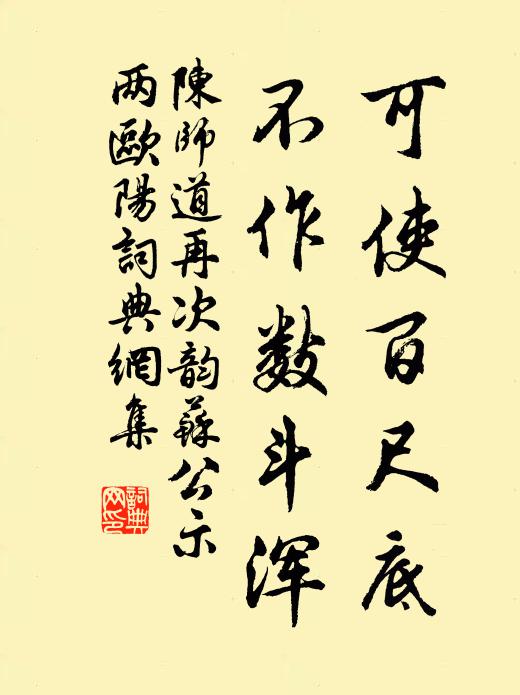 可使百尺底
不作数斗浑
陳師道再次韵蘇公示
两歐陽詞典網集
詞典網印